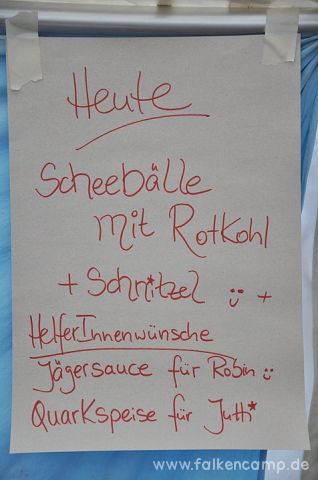 Heute
Scheebälle
mit Rotkohl
+ Schnitzel ü +
HelferInnenwünsche
Jägersauce für Robin ü
Quarkspeise für Jutti*
www.falkencamp.de